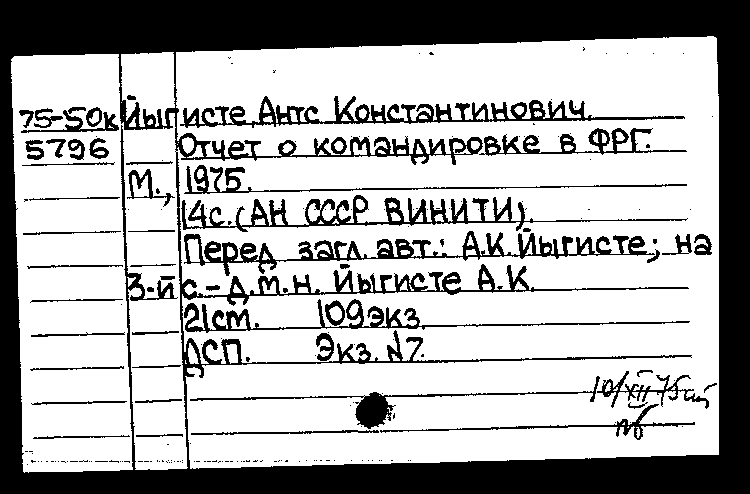 75-50к Йыгисте, Антс Константинович.
5796 Отчет о командировке в ФРГ.
М., 1975.
14с. (АН СССР. ВИНИТИ).
Перед загл. авт.: А.К. Йыгисте; на
3-й с. – д.м.н. Йыгисте А.К.
21см. 109экз.
ДСП. Экз. №7.
10/XII 75